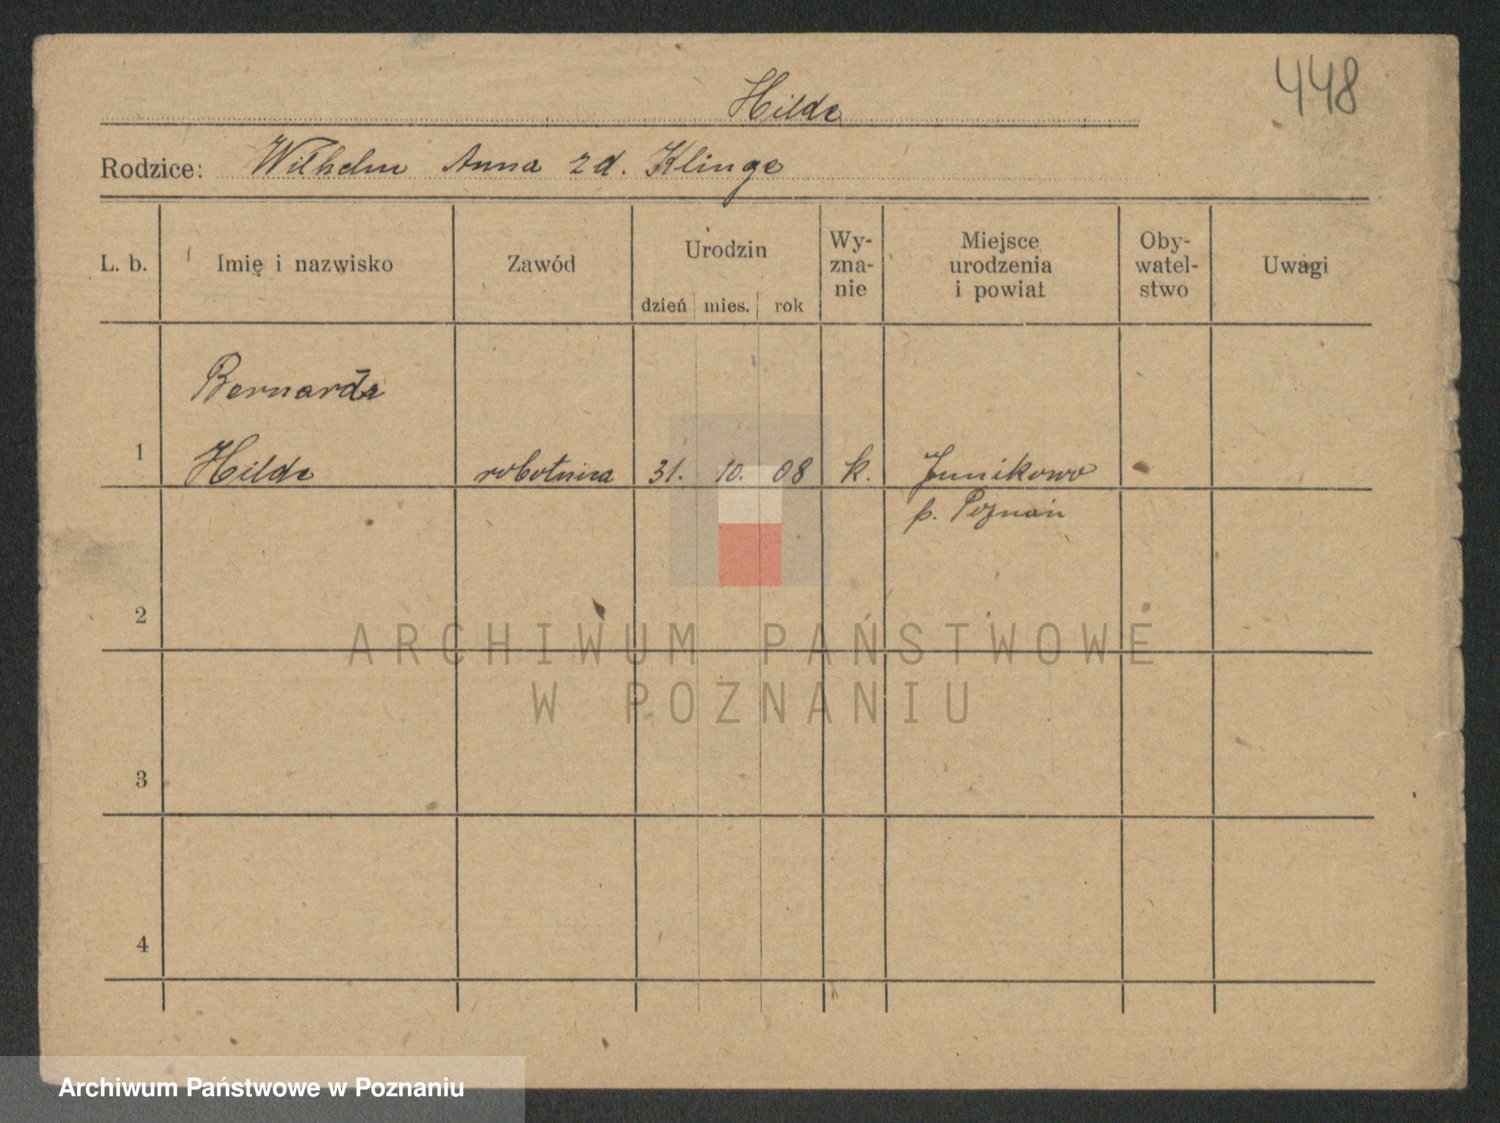 448
Hilda
Rodzice: Wilhelm Anna zd. Klinge
L. b. Imię i nazwisko Zawód Urodzin Wy- zna- nie Miejsce urodzenia i powiat Oby- watel- stwo Uwagi
dzień mies. rok
Bernarda
1 Hilda robotnica 31. 10. 08 k. Junikowo
p. Poznań
2
3
4
ARCHIWUM PAŃSTWOWE
W POZNANIU
Archiwum Państwowe w Poznaniu